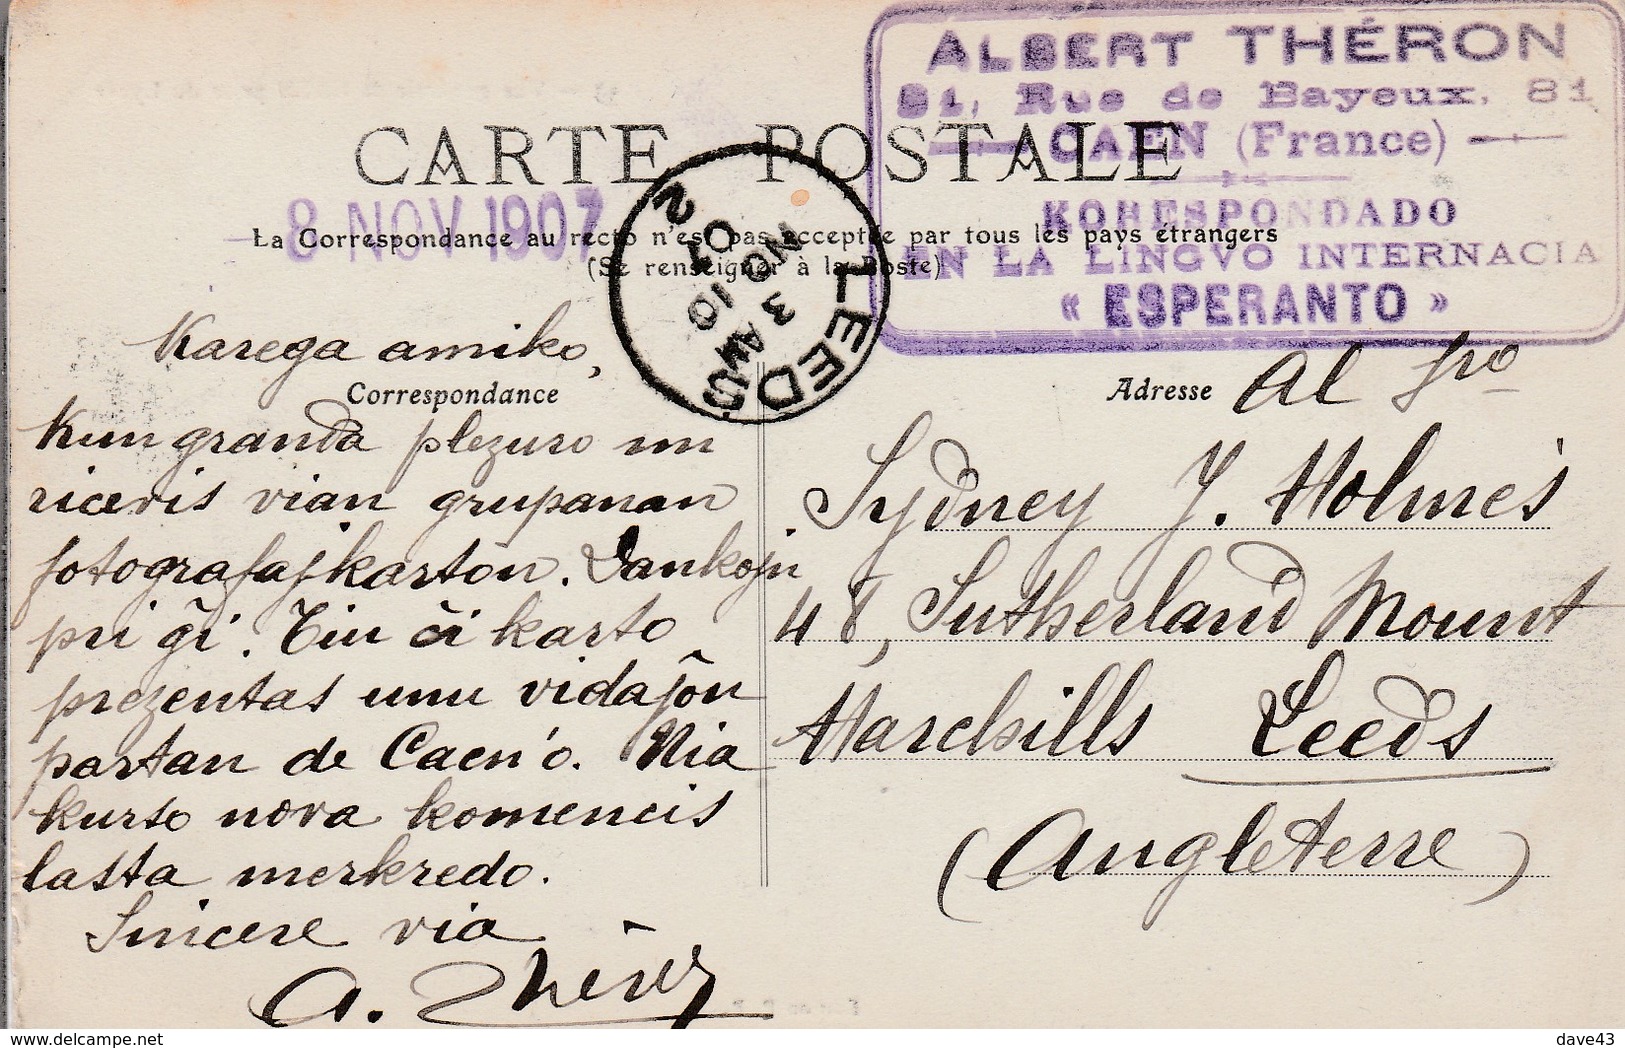 ALBERT THÉRON
81, Rue de Bayeux, 81
CAEN (France)
KORESPONDADO
EN LA LINGVO INTERNACIA
« ESPERANTO »
CARTE POSTALE
8 NOV 1907
La Correspondance au recto n'est pas acceptée par tous les pays étrangers
(Se renseigner à la Poste)
LEEDS
3 AM
NO 10
07
2
Karega amiko,
Correspondance
Kun granda plezuro mi
ricevis vian grupanan
fotografajkarton. Dankojn
pri ĝi. Tiu ĉi karto
prezentas unu vidaĵon
partan de Caen'o. Nia
kurso nova komencis
lasta merkredo.
Sincere via
A. Théron
Adresse
Al Sro
Sydney J. Holmes
48, Sutherland Mount
Harehills Leeds
(Angleterre)
delcampe.net
dave43